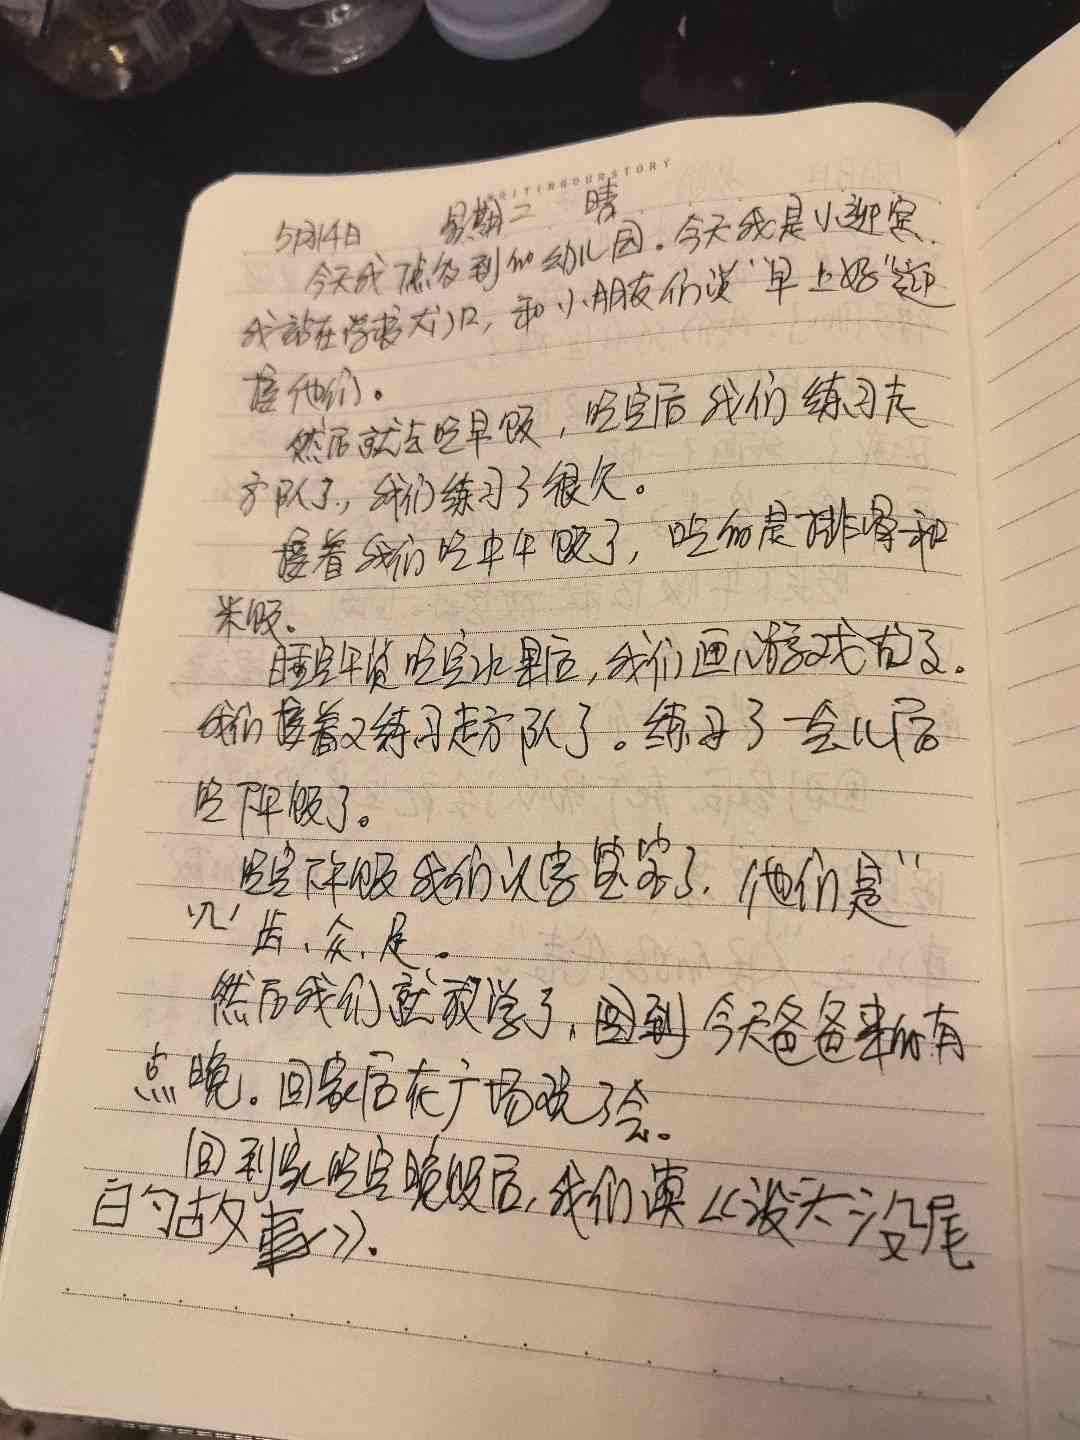 WRITINGOURSTORY
5月14日 星期二 晴
今天我 到的幼儿园。今天我是小迎宾,
我站在学校大门口,和小朋友们说"早上好"迎
接他们。
然后就去吃早饭,吃完后我们练习走
方队了,我们练习了很久。
接着我们吃中午饭了,吃的是排骨和
米饭。
睡完午觉吃完水果后,我们画游戏故事了。
我们接着又练习走方队了。练习了一会儿后
吃下午饭了。
吃完下午饭我们认字宝宝了,他们是"
"齿、众、足。
然后我们就放学了,回到 今天爸爸来的有
点晚。回家后在广场玩了会。
回到家吃完晚饭后,我们读《没头没尾
的故事》.